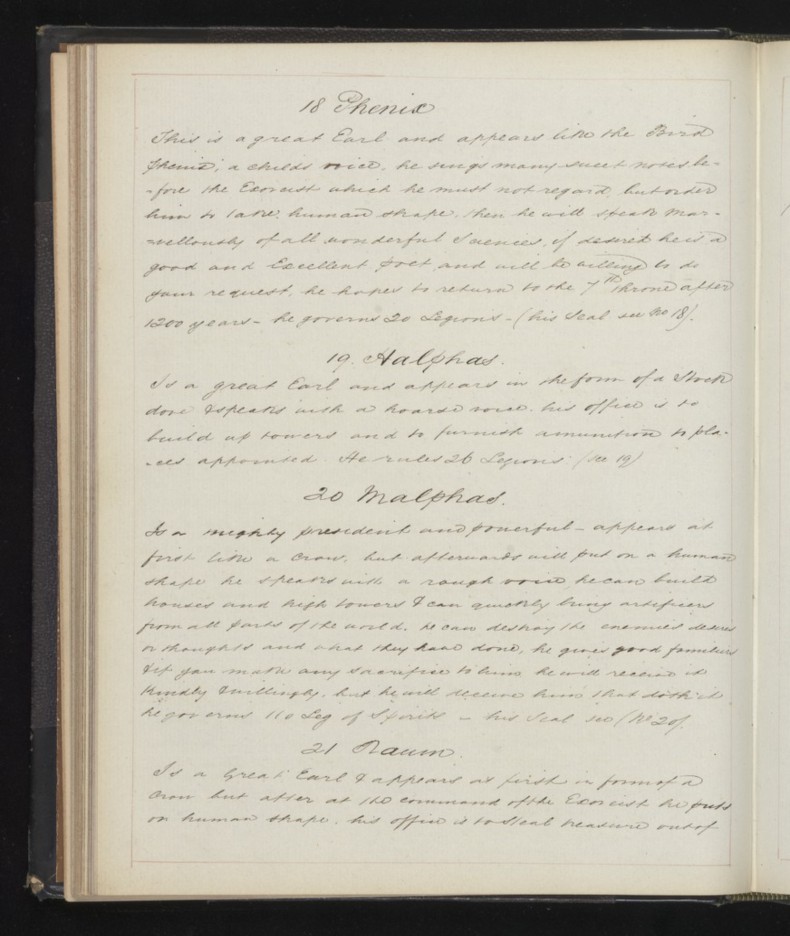 18 Phenix
This is a great Earl and appears like the Bird
Phenix, a childs voice, he sings many sweet notes be-
-fore the Exorcist which he must not regard, but order
him to take human shape, then he will speak mar-
-vellously of all wonderful Sciences, if desired he is a
good and Excellent poet and will be willing to do
your request, he hopes to return to the 7th throne after
1200 years - he governs 20 Legions - (his Seal see No 18).
19. Halphas.
Is a great Earl and appears in the form of a Stock
dove & speaks with a hoarse voice. his office is to
build up towers and to furnish amunition to pla-
-ces appointed He rules 26 Legions (see 19)
20 Malphas.
Is a mighty president and powerful - appears at
first like a Crow, but afterwards will put on a human
shape he speaks with a rough voice he can build
houses and high towers & can quickly bring artificers
from all parts of the world. he can destroy the enemies desires
or thoughts and what they have done, he gives good familiars
& if you make any sacrifice to him he will receive it
Kindly & willingly, but he will deceive him that doth it
he governs 40 Leg of Spirits - his Seal see (No 20).
21 Raum
Is a Great Earl & appears as first in form of a
Crow but after at the command of the Exorcist he puts
on human shape. his office is to steal treasure out of